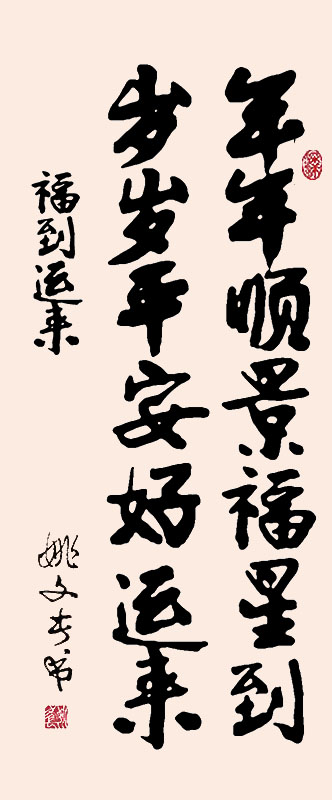 年年顺景福星到
岁岁平安好运来
福到运来
姚文长书